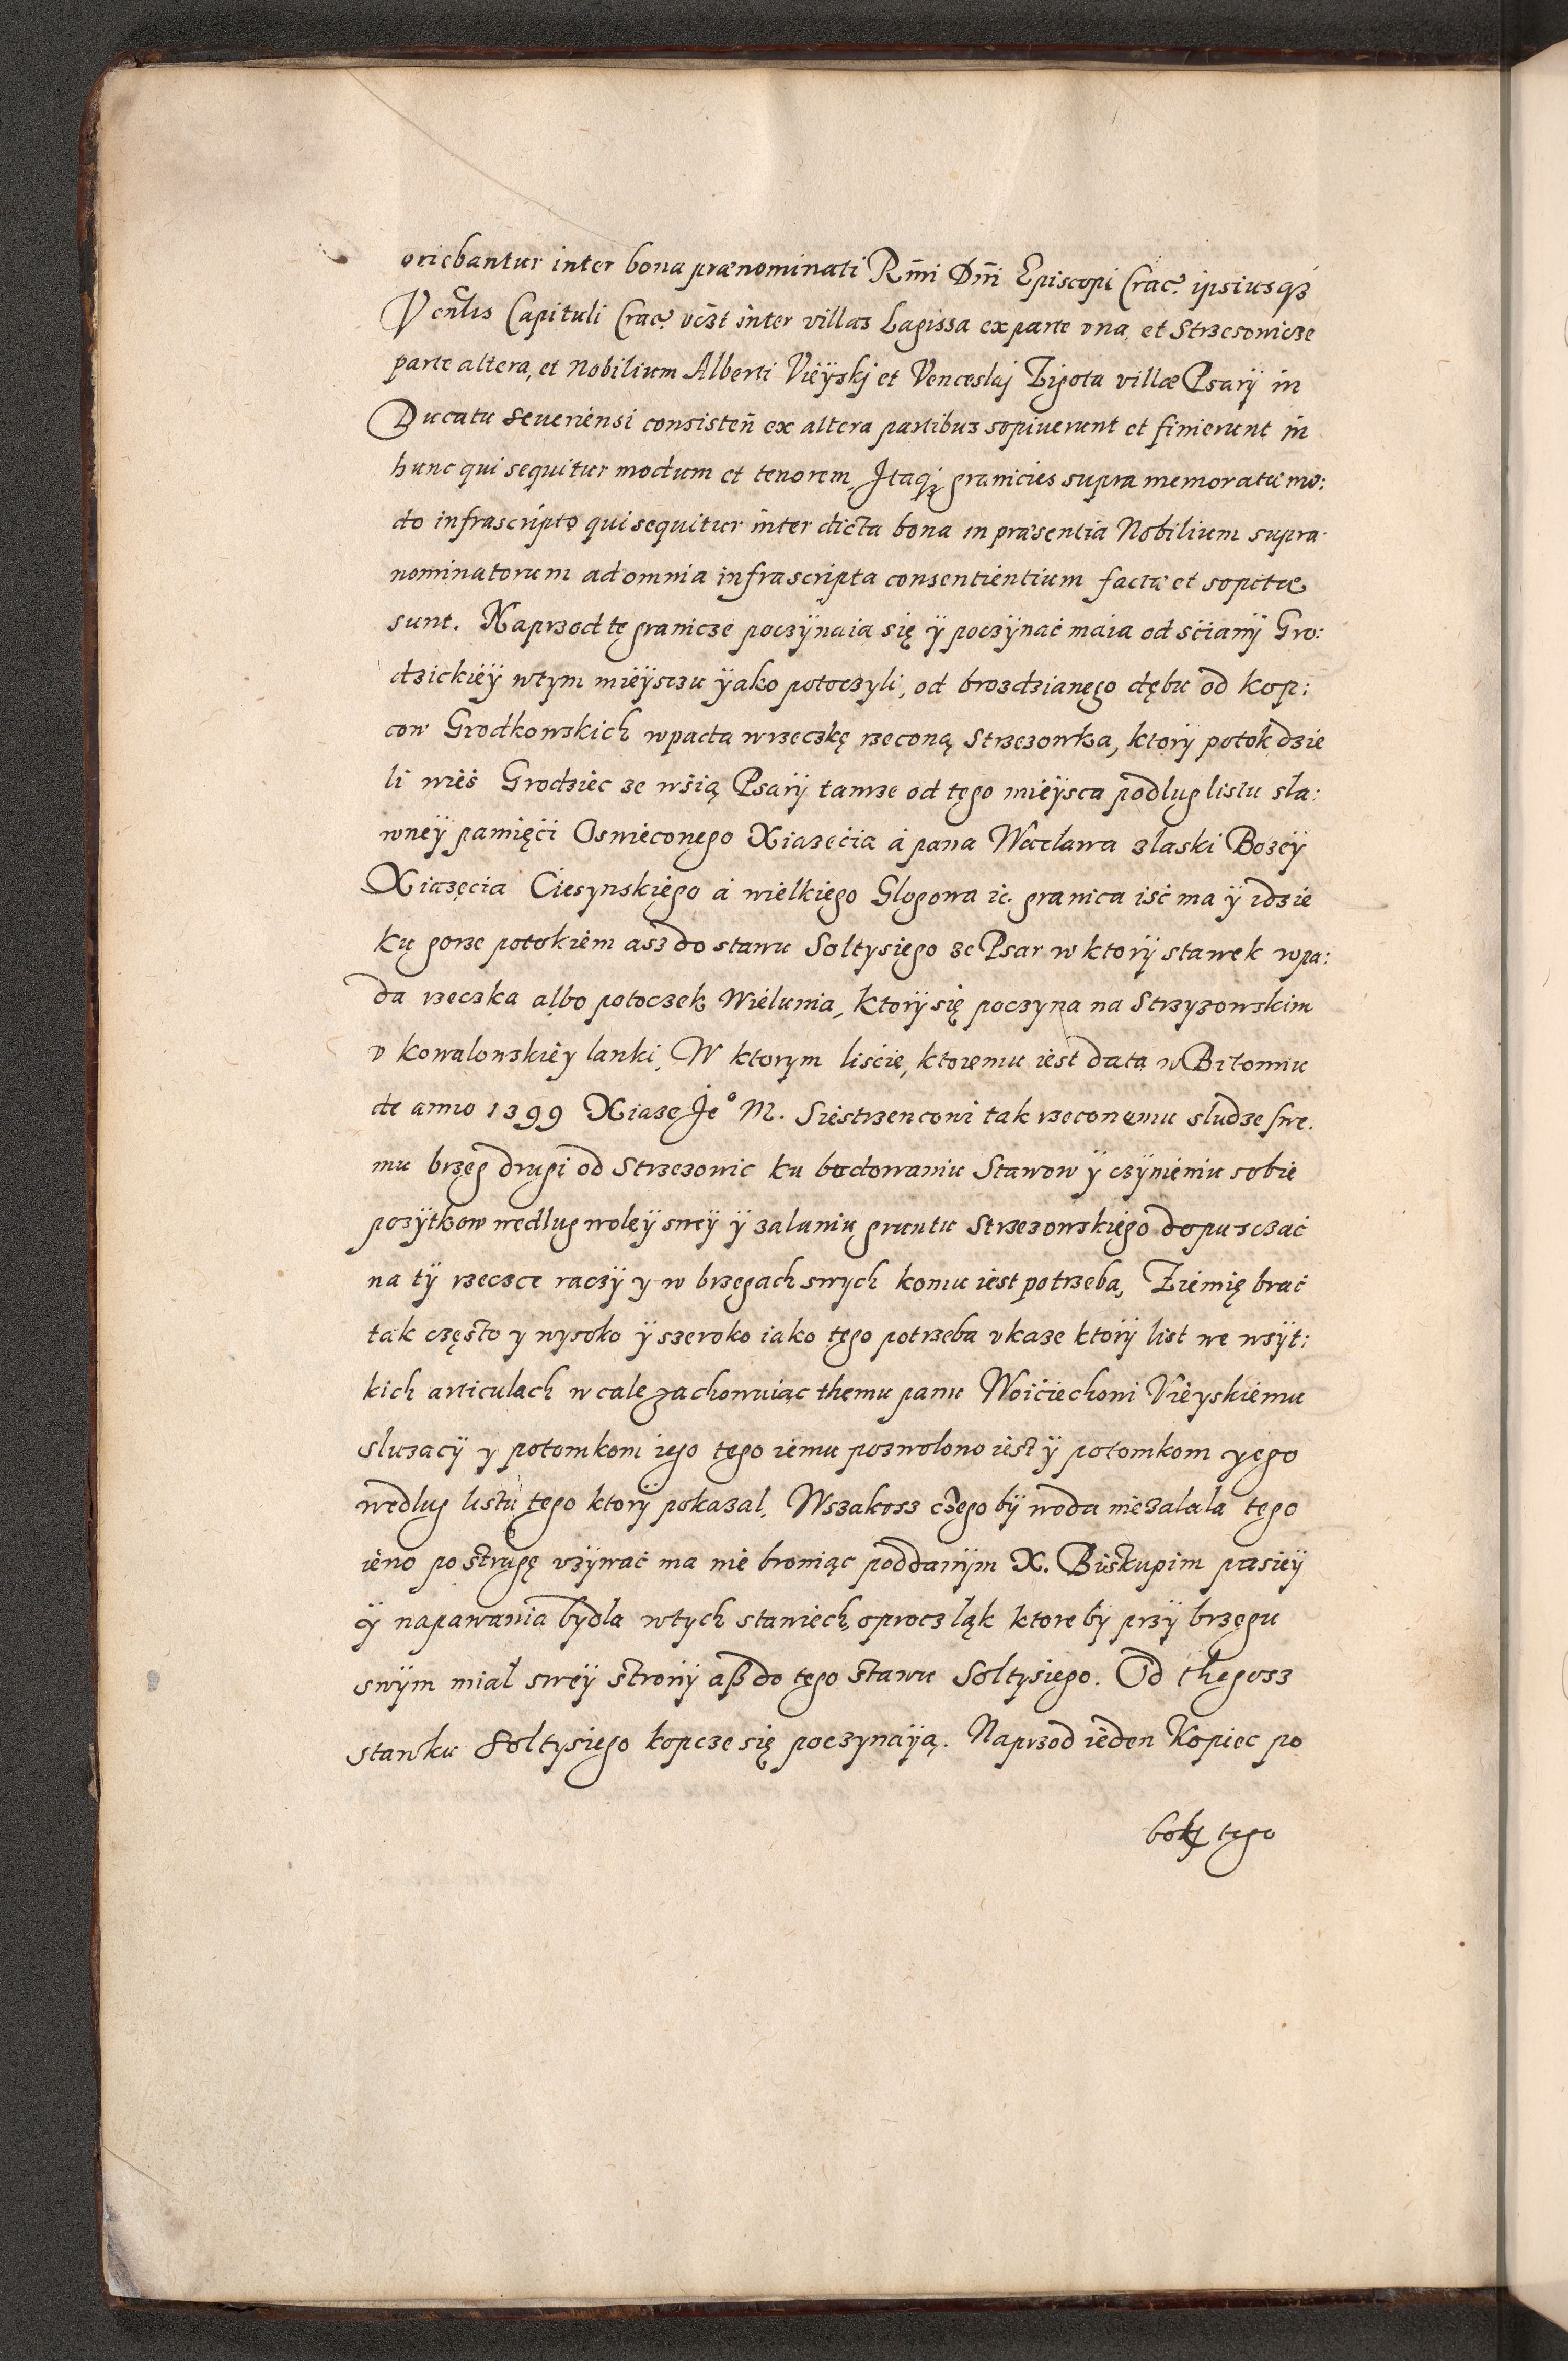 oriebantur inter bona prænominati Rm̃i Dñi Episcopi Crac. ipsiusqȝ
Venlis Capituli Crac. vczt inter villas Lagissa ex parte vna, et Strzesowicze
parte altera, et Nobilium Alberti Vieÿskj et Venceslaj Zigota villæ Psarÿ in
Ducatu Seueriensi consisteñ ex altera partibus sopiuerunt et finierunt in
hunc qui sequitur modum et tenorem, Itaqȝ granicies supra memoratæ mo:
do infrascripto qui sequitur inter dicta bona in præsentia Nobilium supra
nominatorum ad omnia infrascripta consentientium factæ et sopitæ
sunt. Naprzod te granicze poczÿnaia się ÿ poczÿnać maia od sćianÿ Gro:
dzickiëÿ wtym mieÿsczu ÿako potoczyli, od brozdzianego dębu od kop:
cow Grodkowskich wpada wrzeczkę rzeconą Strzezowka, ktorÿ potok dzie
li wieś Grodziec ze wśią Psarÿ tamze od tego mieÿsca podlug listu sla:
wneÿ pamięći Oswieconego Xiazećia á pana Wacława zlaski Bozeÿ
Xiazęcia Ciesynskiego á wielkiego Glogowa ic. granica iść ma ÿ idzie
ku gorze potokiem asz do stawu Soltysiego ze Psar w ktorÿ stawek wpa:
da rzeczka albo potoczek Wielunia, ktorÿ się poczyna na Strzyzowskim
v kowalowskiey lanki, W ktorym lisćie, ktoremu iest data w Bitomiu
de anno 1399 Xiaze Ie° M. Siestrzencowi tak rzeconemu sludze swe.
mu brzeg drugi od Strzezowic ku budowaniu Stawow ÿ czÿnieniu sobie
pozÿtkow wedlug woleÿ sweÿ ÿ zalaniu gruntu Strzezowskiego dopusczać
na tÿ rzeczce raczÿ y w brzegach swych komu iest potrzeba, Ziemię brać
tak często y wysoko ÿ szeroko iako tego potrzeba vkaze ktorÿ list we wsÿt:
kich articulach w cale zachowuiąc themu panu Woićiechowi Vieyskiemu
sluzacÿ y potomkom iego tego iemu pozwolono iest ÿ potomkom yego
wedlug listu tego ktorÿ pokazal. Wszakosz czego bÿ woda niezalala tego
ieno po strugę vzÿwać ma nie broniąc poddanÿm X. Biskupim pasieÿ
ÿ napawania bydla wtych stawiech, oprocz ląk ktore by przÿ brzegu
swÿm mial sweÿ stronÿ aß do tego stawu Soltysiego. Od thegosz
stawku Soltysiego kopcze się poczynaÿą. Naprzod ieden Kopiec po
boky tego